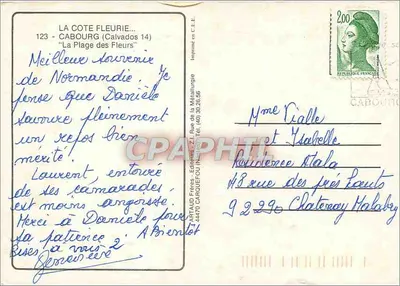 LA COTE FLEURIE...
123 - CABOURG (Calvados 14)
"La Plage des Fleurs"
Meilleur souvenir
de Normandie. Je
pense que Danièle
savoure pleinement
un repos bien
mérité.
Laurent, entouré
de ses camarades,
est moins angoissé.
Merci à Danièle pour
sa patience. A Bientôt
Bises à vous 2
Geneviève
Imprimé en C.E.E.
ARTAUD Frères, Editeurs - Z.I. Rue de la Métallurgie
44470 CARQUEFOU Tél. (40) 30.26.56
2,00
REPUBLIQUE FRANÇAISE
CABOURG
CPAPHIL
Mme Vialle
et Isabelle
Résidence Atala
48 rue des prés hauts
92290 Chatenay Malabry